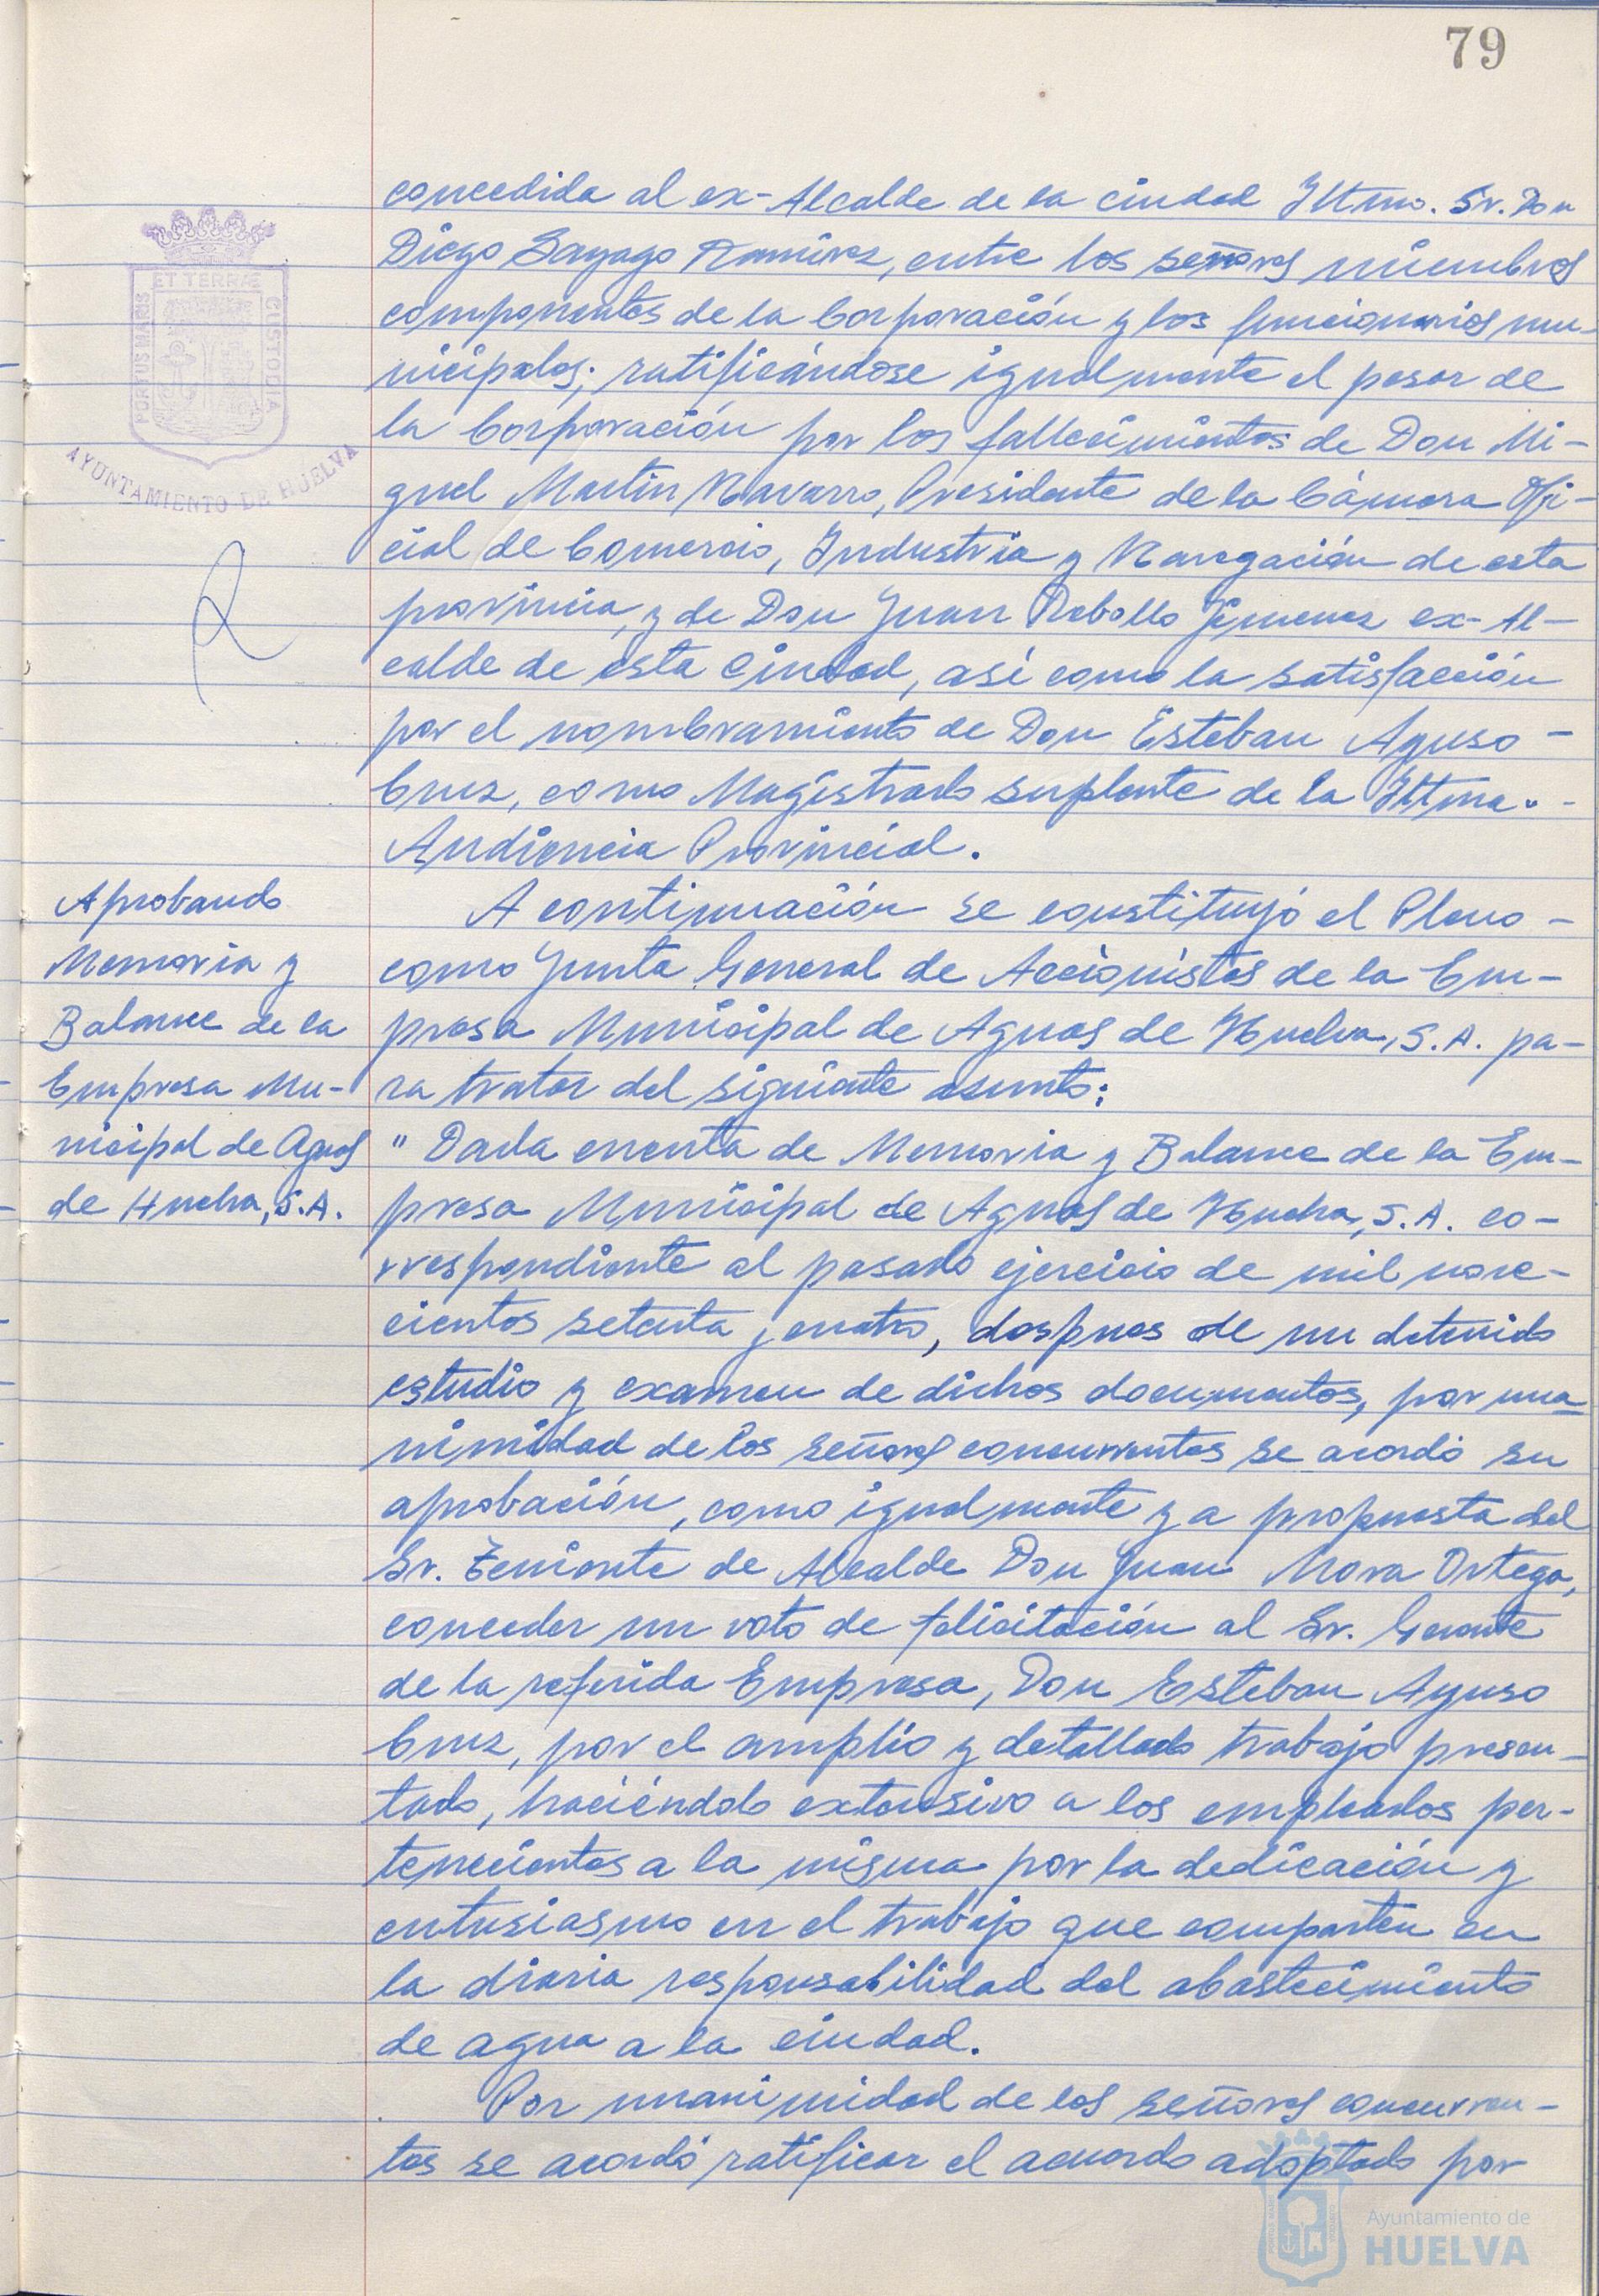 79
concedida al ex-Alcalde de la ciudad Iltmo. Sr. Don
Diego Sayago Ramírez, entre los señores miembros
componentes de la Corporación y los funcionarios mu-
nicipales; ratificándose igualmente el pesar de
la Corporación por los fallecimientos de Don Mi-
guel Martin Navarro, Presidente de la Cámara Ofi-
cial de Comercio, Industria y Navegación de esta
provincia, y de Don Juan Rebollo Jimenez ex-Al-
calde de esta Ciudad, así como la satisfacción
por el nombramiento de Don Esteban Ayuso-
Cruz, como Magistrado suplente de la Iltma. -
Audiencia Provincial.
A continuación se constituyó el Pleno -
como Junta General de Accionistas de la Em-
presa Municipal de Aguas de Huelva, S.A. pa-
ra tratar del siguiente asunto:
" Dada cuenta de Memoria y Balance de la Em-
presa Municipal de Aguas de Huelva, S.A. co-
rrespondiente al pasado ejercicio de mil nove-
cientos setenta y cuatro, despues de un detenido
estudio y examen de dichos documentos, por una-
nimidad de los señores concurrentes se acordó su
aprobación, como igualmente y a propuesta del
Sr. Teniente de Alcalde Don Juan Mora Ortega,
conceder un voto de felicitación al Sr. Gerente
de la referida Empresa, Don Esteban Ayuso
Cruz, por el amplio y detallado trabajo presen-
tado, haciéndolo extensivo a los empleados per-
tenecientes a la misma por la dedicación y
entusiasmo en el trabajo que comparten en
la diaria responsabilidad del abastecimiento
de agua a la ciudad.
Por unanimidad de los señores concurren-
tes se acordó ratificar el acuerdo adoptado por
Aprobando
Memoria y
Balance de la
Empresa Mu-
nicipal de Aguas
de Huelva, S.A.
PORTUS MARIS
ET TERRÆ
CUSTODIA
AYUNTAMIENTO DE HUELVA
Ayuntamiento de
HUELVA